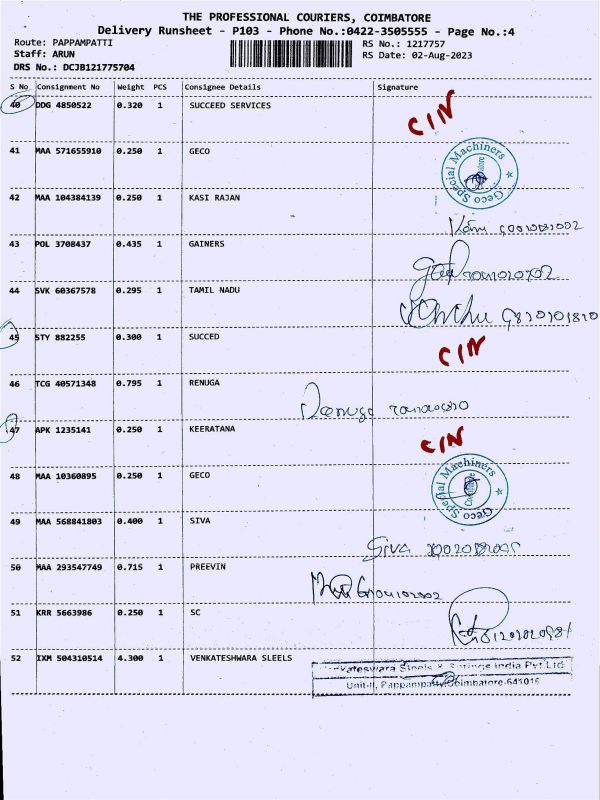 THE PROFESSIONAL COURIERS, COIMBATORE
Delivery Runsheet - P103 - Phone No.:0422-3505555 - Page No.:4
Route: PAPPAMPATTI RS No.: 1217757
Staff: ARUN RS Date: 02-Aug-2023
DRS No.: DCJB121775704
S No. Consignment No Weight PCS Consignee Details Signature
40 DDG 4850522 0.320 1 SUCCEED SERVICES CIN
41 MAA 571655910 0.250 1 GECO Geco Special Machiners
42 MAA 104384139 0.250 1 KASI RAJAN
43 POL 3708437 0.435 1 GAINERS
44 SVK 60367578 0.295 1 TAMIL NADU
45 STY 882255 0.300 1 SUCCED CIN
46 TCG 40571348 0.795 1 RENUGA
47 APK 1235141 0.250 1 KEERATANA CIN
48 MAA 10360895 0.250 1 GECO Geco Special Machiners
49 MAA 568841803 0.400 1 SIVA Siva
50 MAA 293547749 0.715 1 PREEVIN
51 KRR 5663986 0.250 1 SC
52 IXM 504310514 4.300 1 VENKATESHWARA SLEELS India Pvt.Ltd
Unit-II, Pappampatty Coimbatore-641016